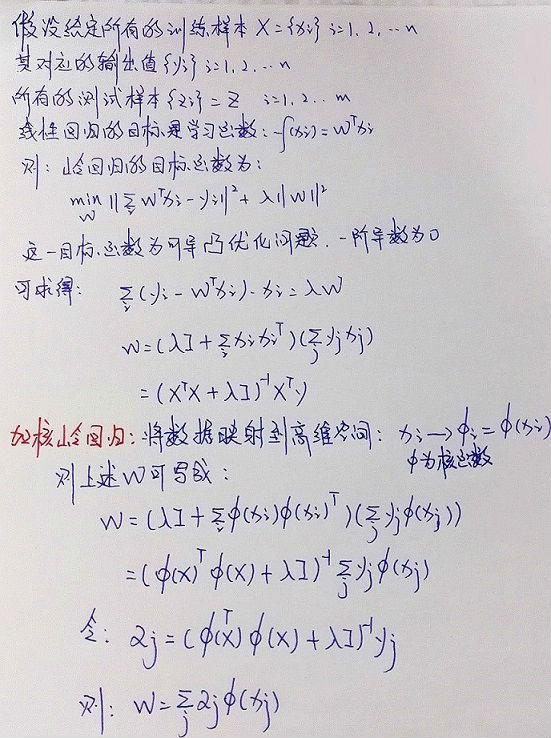 假设给定所有的训练样本 X = {xi} i=1,2,…n
其对应的输出值{yi} i=1,2,…n
所有的测试样本{zi} = Z i=1,2…m
线性回归的目标是学习函数: f(xi) = wᵀxi
则: 岭回归的目标函数为:
min_w ||Σ_i wᵀxi - yi||² + λ||w||²
这一目标函数为可导凸优化问题. 一阶导数为0
可求得: Σ_i (yi - wᵀxi)·xi = λw
w = (λI + Σ_i xi xiᵀ)(Σ_j yj xj)
= (XᵀX + λI)⁻¹Xᵀy
加核岭回归: 将数据映射到高维空间: xi → ϕi = ϕ(xi)
ϕ为核函数
则上述w可写成:
w = (λI + Σ_i ϕ(xi)ϕ(xi)ᵀ)(Σ_j yjϕ(xj))
= (ϕ(X)ᵀϕ(X) + λI)⁻¹ Σ_j yjϕ(xj)
令: αj = (ϕ(X)ᵀϕ(X) + λI)⁻¹yj
则: w = Σ_j αjϕ(xj)